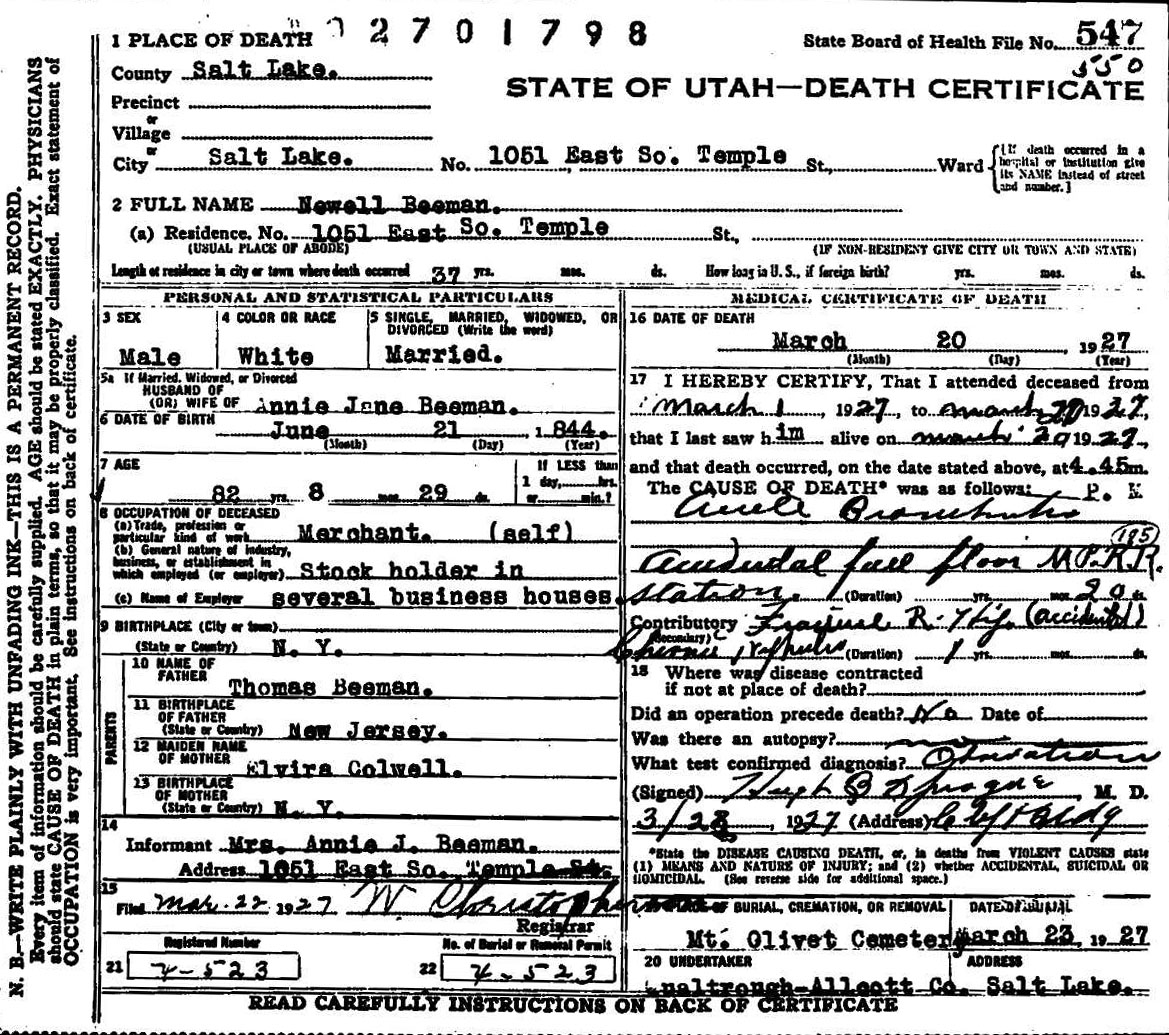 2701798
1 PLACE OF DEATH
State Board of Health File No. 547
550
County Salt Lake.
STATE OF UTAH—DEATH CERTIFICATE
Precinct
or
Village
or
City Salt Lake. No. 1051 East So. Temple St., Ward
[If death occurred in a hospital or institution give its NAME instead of street and number.]
2 FULL NAME Newell Beeman.
(a) Residence. No. 1051 East So. Temple St.,
(USUAL PLACE OF ABODE) (IF NON-RESIDENT GIVE CITY OR TOWN AND STATE)
Length of residence in city or town where death occurred 37 yrs. mos. ds. How long in U. S., if foreign birth? yrs. mos. ds.
PERSONAL AND STATISTICAL PARTICULARS
3 SEX
Male
4 COLOR OR RACE
White
5 SINGLE, MARRIED, WIDOWED, OR
DIVORCED (Write the word)
Married.
5a If Married, Widowed, or Divorced
HUSBAND OF
(OR) WIFE OF Annie Jane Beeman.
6 DATE OF BIRTH
June 21 1844.
(Month) (Day) (Year)
7 AGE
82 yrs. 8 mos. 29 ds.
If LESS than
1 day, hrs.
or min.?
8 OCCUPATION OF DECEASED
(a) Trade, profession or
particular kind of work Merchant. (self)
(b) General nature of industry,
business, or establishment in
which employed (or employer) Stock holder in
(c) Name of Employer several business houses.
9 BIRTHPLACE (City or town)
(State or Country) N. Y.
PARENTS
10 NAME OF
FATHER
Thomas Beeman.
11 BIRTHPLACE
OF FATHER
(State or Country) New Jersey.
12 MAIDEN NAME
OF MOTHER
Elvira Colwell.
13 BIRTHPLACE
OF MOTHER
(State or Country) N. Y.
14
Informant Mrs. Annie J. Beeman.
Address 1051 East So. Temple St.
15
Filed Mar. 22 1927 W. Christopherson
Registrar
Registered Number
21 4-523
No. of Burial or Removal Permit
22 4-523
MEDICAL CERTIFICATE OF DEATH
16 DATE OF DEATH
March 20 1927
(Month) (Day) (Year)
17 I HEREBY CERTIFY, That I attended deceased from
March 1, 1927, to March 20 1927,
that I last saw him alive on March 20 1927,
and that death occurred, on the date stated above, at 4.45m.
The CAUSE OF DEATH* was as follows: P.
Acute Bronchitis
(185)
Accidental fall floor R.R.
station. (Duration) yrs. mos. 20 ds.
Contributory R. Hip (accidental)
(Secondary)
Chronic Nephritis (Duration) 1 yrs. mos. ds.
18 Where was disease contracted
if not at place of death?
Did an operation precede death? No Date of
Was there an autopsy? no
What test confirmed diagnosis? Observation
(Signed) Hugh B Sprague, M. D.
3/28, 1927 (Address) Clift Bldg
*State the DISEASE CAUSING DEATH, or, in deaths from VIOLENT CAUSES state
(1) MEANS AND NATURE OF INJURY; and (2) whether ACCIDENTAL, SUICIDAL OR
HOMICIDAL. (See reverse side for additional space.)
19 PLACE OF BURIAL, CREMATION, OR REMOVAL DATE OF BURIAL
Mt. Olivet Cemetery March 23, 1927
20 UNDERTAKER ADDRESS
Co. Salt Lake.
READ CAREFULLY INSTRUCTIONS ON BACK OF CERTIFICATE
N. B.—WRITE PLAINLY WITH UNFADING INK—THIS IS A PERMANENT RECORD.
Every item of information should be carefully supplied. AGE should be stated EXACTLY. PHYSICIANS
should state CAUSE OF DEATH in plain terms, so that it may be properly classified. Exact statement of
OCCUPATION is very important. See instructions on back of certificate.